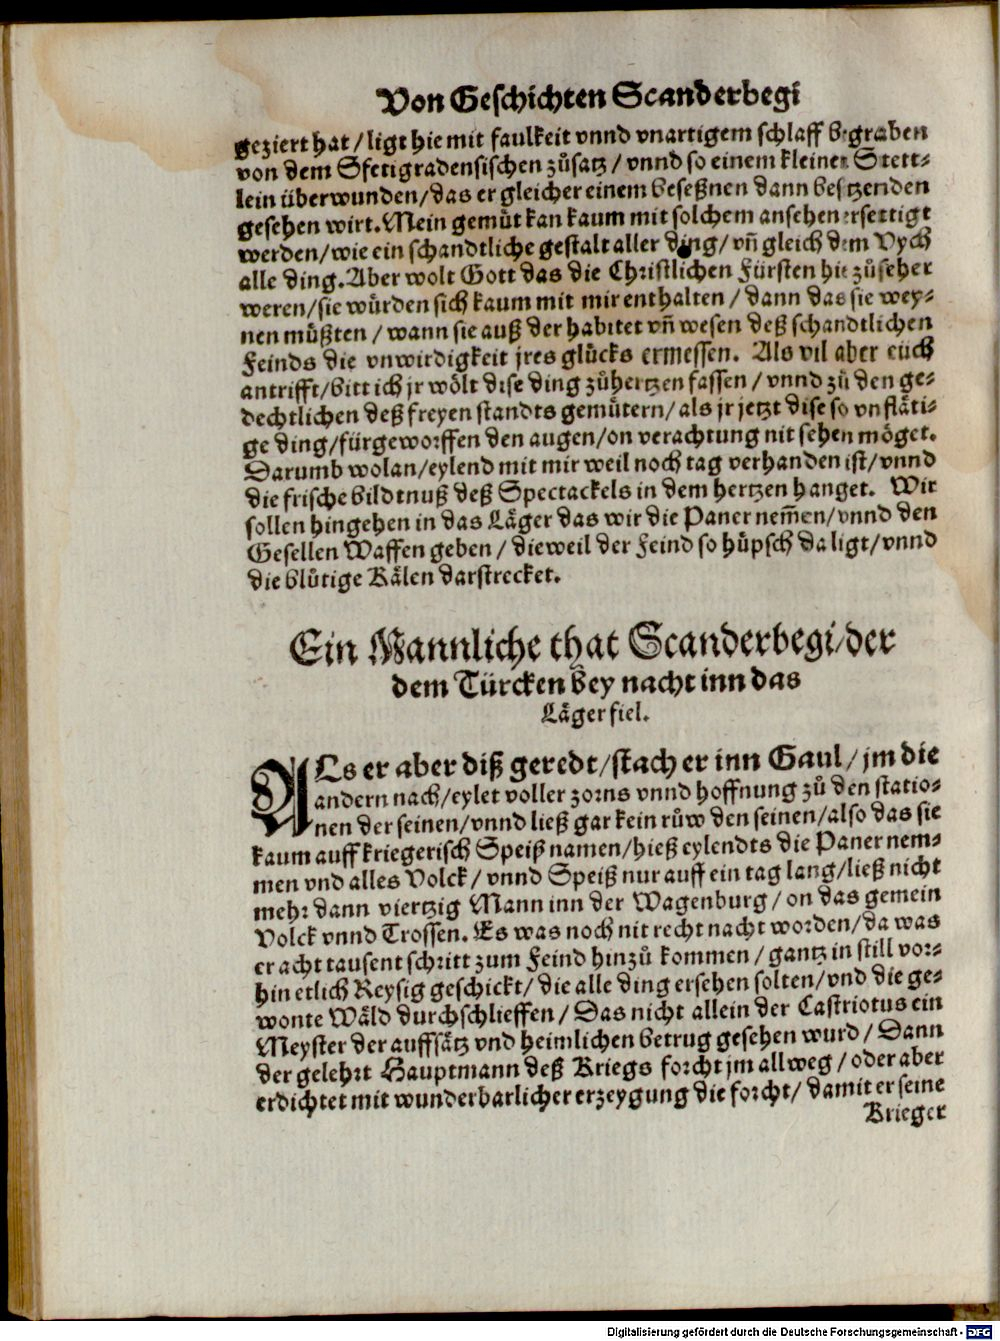 Von Geschichten Scanderbegi
geziert hat / ligt hie mit faulkeit vnnd vnartigem schlaff begraben
von dem Sfetigradensischen zůsatz / vnnd so einem kleinen Stett-
lein überwunden / das er gleicher einem beseßnen dann besitzenden
gesehen wirt. Mein gemůt kan kaum mit solchem ansehen ersettigt
werden / wie ein schandtliche gestalt aller ding / vñ gleich dem Vych
alle ding. Aber wolt Gott das die Christlichen Fürsten hie zůseher
weren / sie würden sich kaum mit mir enthalten / dann das sie wey-
nen müßten / wann sie auß der habitet vñ wesen deß schandtlichen
Feinds die vnwirdigkeit jres glücks ermessen. Als vil aber euch
antrifft / bitt ich jr wölt dise ding zůhertzen fassen / vnnd zů den ge-
dechtlichen deß freyen standts gemůtern / als jr jetzt dise so vnfläti-
ge ding / fürgeworffen den augen / on verachtung nit sehen möget.
Darumb wolan / eylend mit mir weil noch tag verhanden ist / vnnd
die frische bildtnuß deß Spectackels in dem hertzen hanget. Wir
sollen hingehen in das Läger das wir die Paner nem̃en / vnnd den
Gesellen Waffen geben / dieweil der Feind so hüpsch da ligt / vnnd
die blůtige Kälen darstrecket.
Ein Mannliche that Scanderbegi / der
dem Türcken bey nacht inn das
Läger fiel.
ALs er aber diß geredt / stach er inn Gaul / jm die
andern nach / eylet voller zorns vnnd hoffnung zů den statio-
nen der seinen / vnnd ließ gar kein růw den seinen / also das sie
kaum auff kriegerisch Speiß namen / hieß eylendts die Paner nem-
men vnd alles Volck / vnnd Speiß nur auff ein tag lang / ließ nicht
mehr dann viertzig Mann inn der Wagenburg / on das gemein
Volck vnnd Trossen. Es was noch nit recht nacht worden / da was
er acht tausent schritt zum Feind hinzů kommen / gantz in still vor-
hin etlich Reysig geschickt / die alle ding ersehen solten / vnd die ge-
wonte Wäld durchschlieffen / Das nicht allein der Castriotus ein
Meyster der auffsätz vnd heimlichen betrug gesehen wurd / Dann
der gelehrt Hauptmann deß Kriegs forcht jm allweg / oder aber
erdichtet mit wunderbarlicher erzeygung die forcht / damit er seine
Krieger
Digitalisierung gefördert durch die Deutsche Forschungsgemeinschaft - DFG